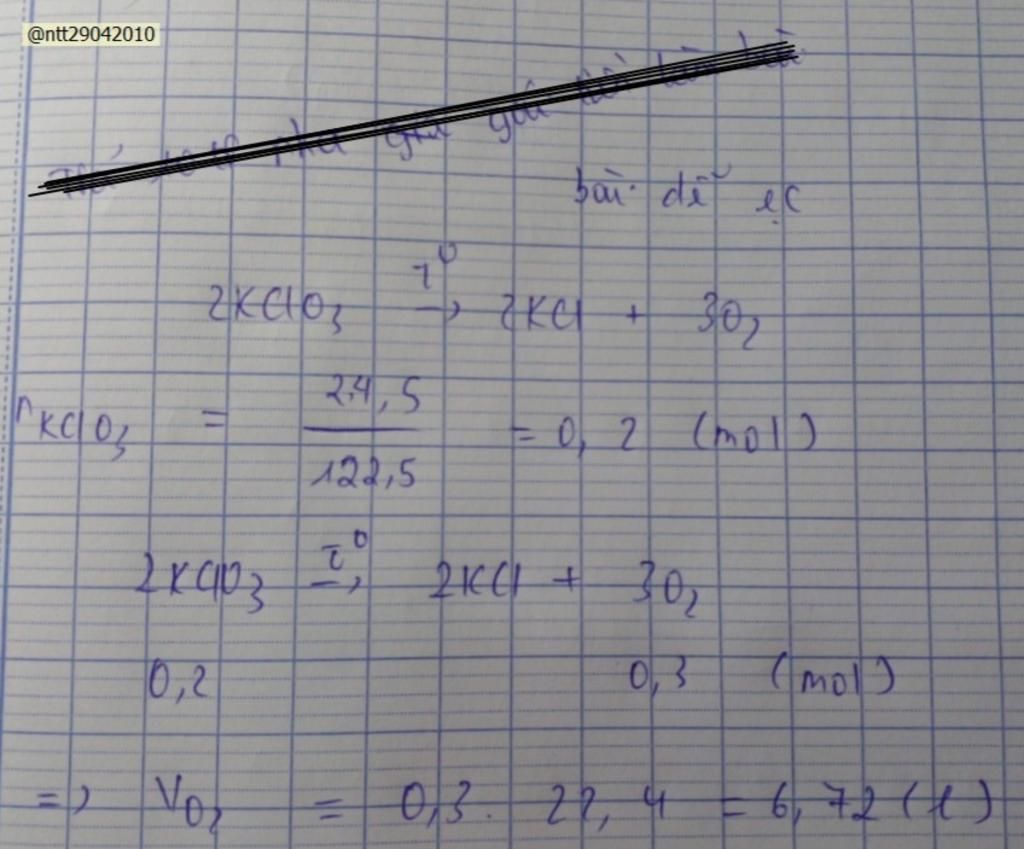 @ntt29042010
bài dễ ẹc
2KClO₃ →(t⁰) 2KCl + 3O₂
nKClO₃ = 24,5 / 122,5 = 0,2 (mol)
2KClO₃ →(t⁰) 2KCl + 3O₂
0,2 0,3 (mol)
=> VO₂ = 0,3. 22,4 = 6,72 (l)